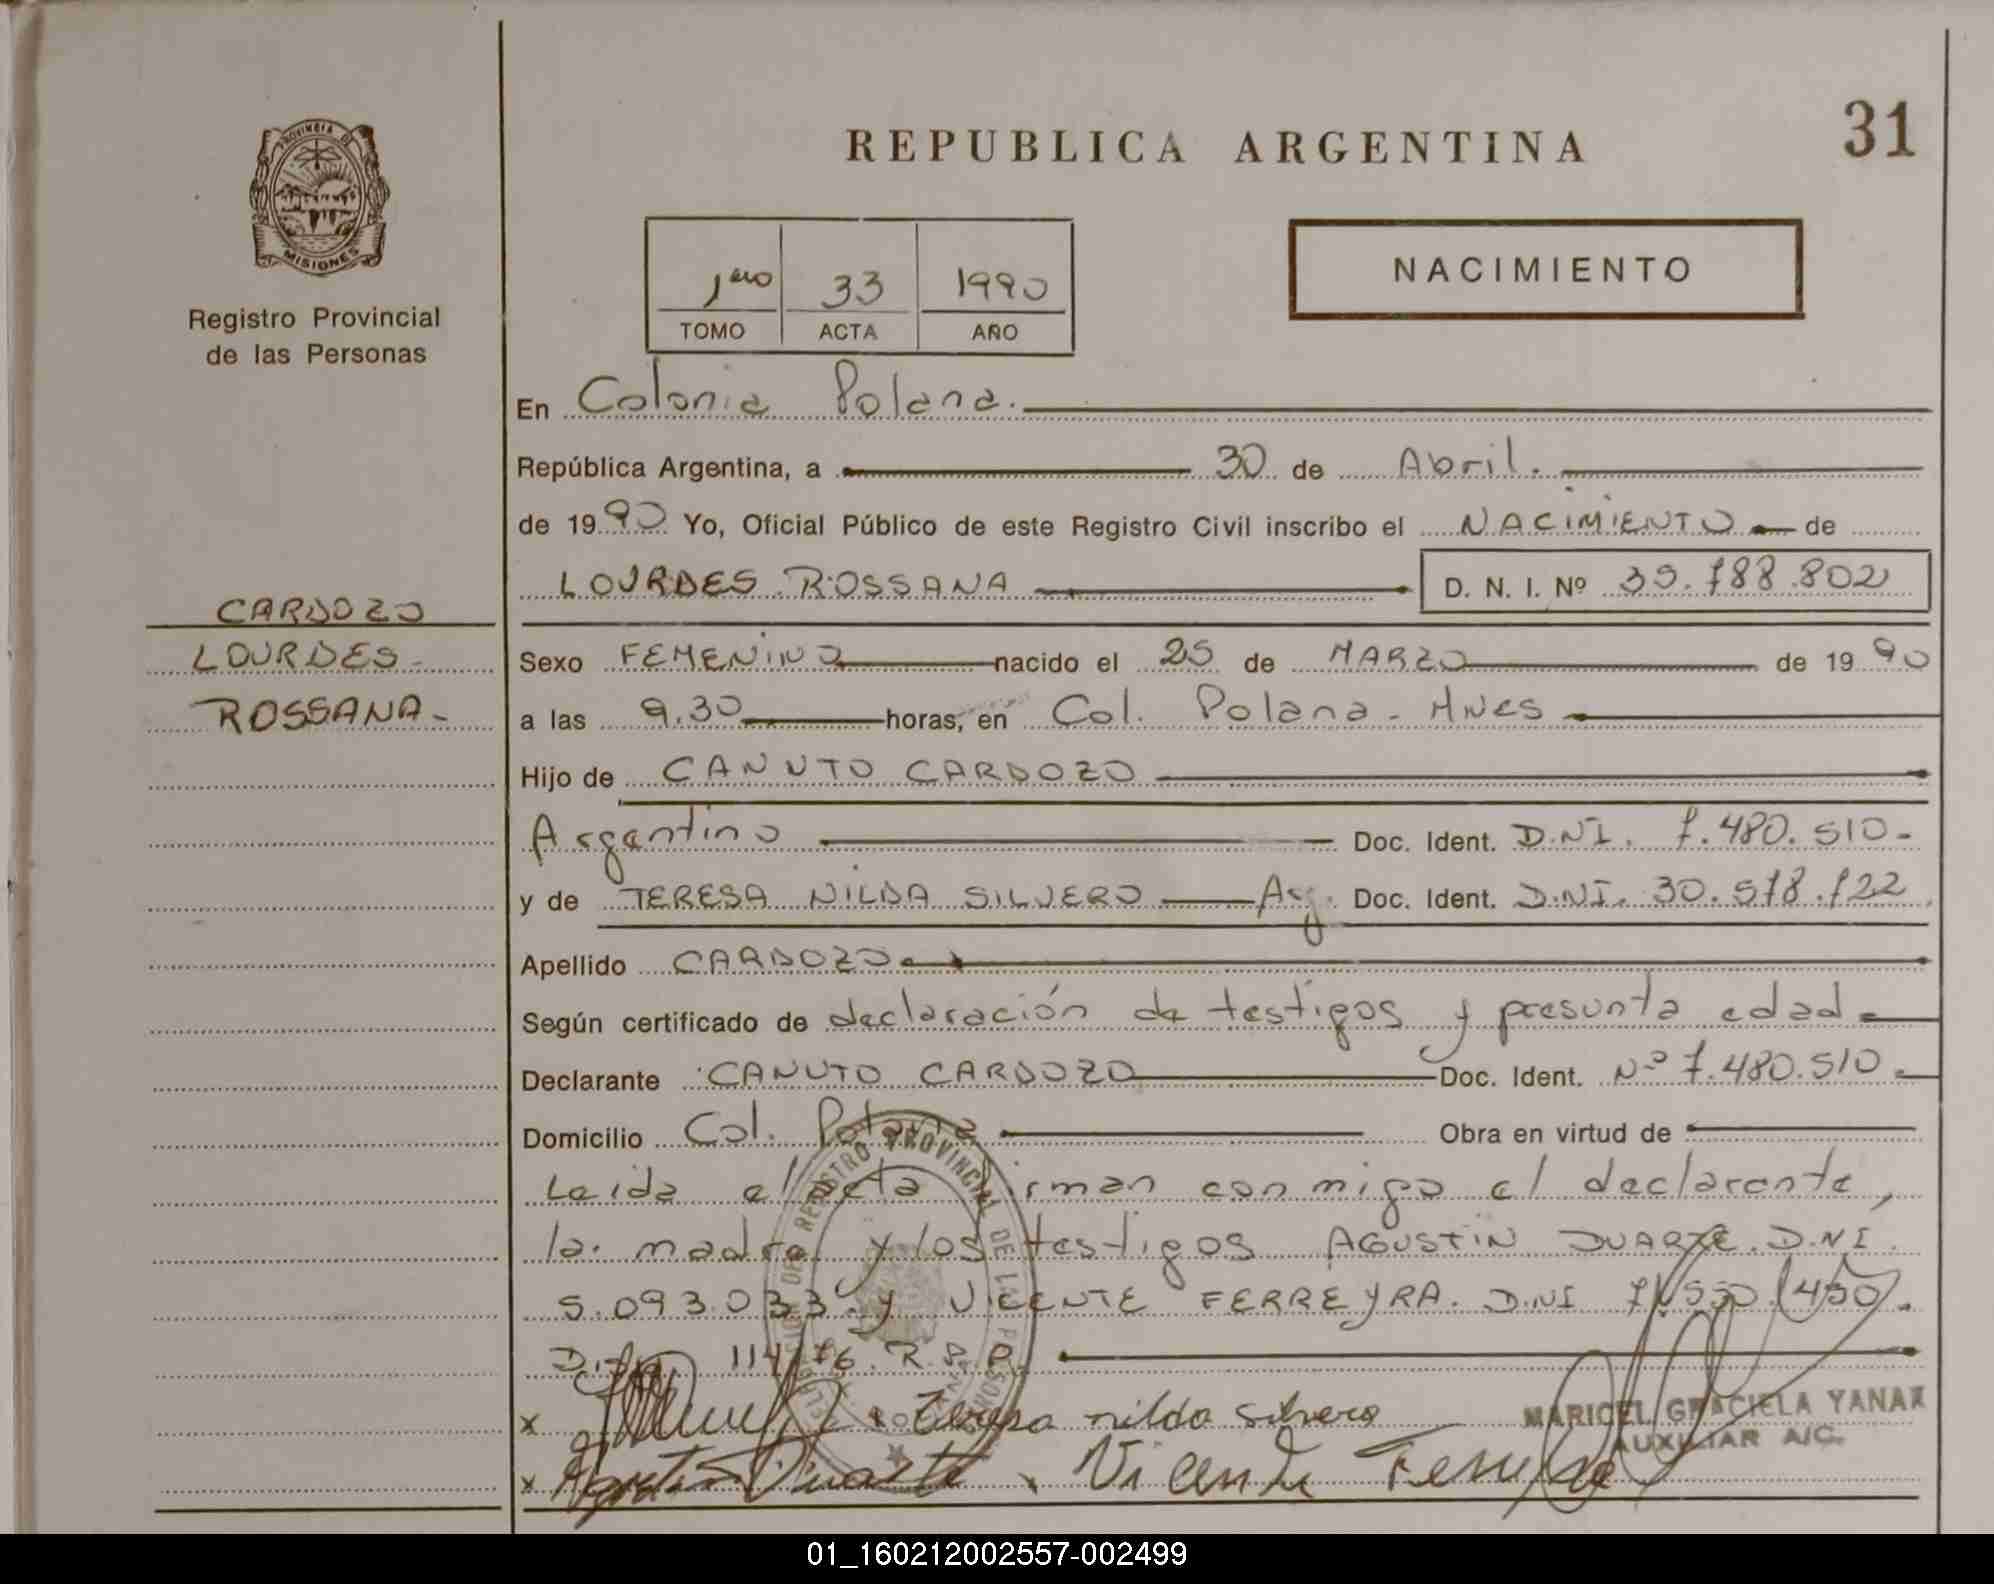 REPUBLICA ARGENTINA
31
PROVINCIA DE
MISIONES
Registro Provincial
de las Personas
1ero 33 1990
TOMO ACTA AÑO
NACIMIENTO
En Colonia Polana.
República Argentina, a 30 de Abril.
de 1990 Yo, Oficial Público de este Registro Civil inscribo el NACIMIENTO de
LOURDES ROSSANA D. N. I. Nº 35.788.802
CARDOZO
LOURDES
ROSSANA-
Sexo FEMENINO nacido el 25 de MARZO de 1990
a las 9.30 horas, en Col. Polana - Mnes
Hijo de CANUTO CARDOZO
Argentino Doc. Ident. D.NI. 7.480.510-
y de TERESA NILDA SILVERO Arg. Doc. Ident. D.NI. 30.578.722
Apellido CARDOZO
Según certificado de declaración de testigos y presunta edad
Declarante CANUTO CARDOZO Doc. Ident. Nº 7.480.510.
Domicilio Col. Polana Obra en virtud de
Leida el acta firman conmigo el declarante,
la madre y los testigos AGUSTIN DUARTE. D.NI.
5.093.033 y VICENTE FERREYRA. D.NI
114/76. R.P.P.
x Teresa nilda silvero
MARICEL GRACIELA YANAK
AUXILIAR A/C.
x Agustin Duarte x Vicente Ferreyra
REGISTRO PROVINCIAL DE LAS PERSONAS
01_160212002557-002499